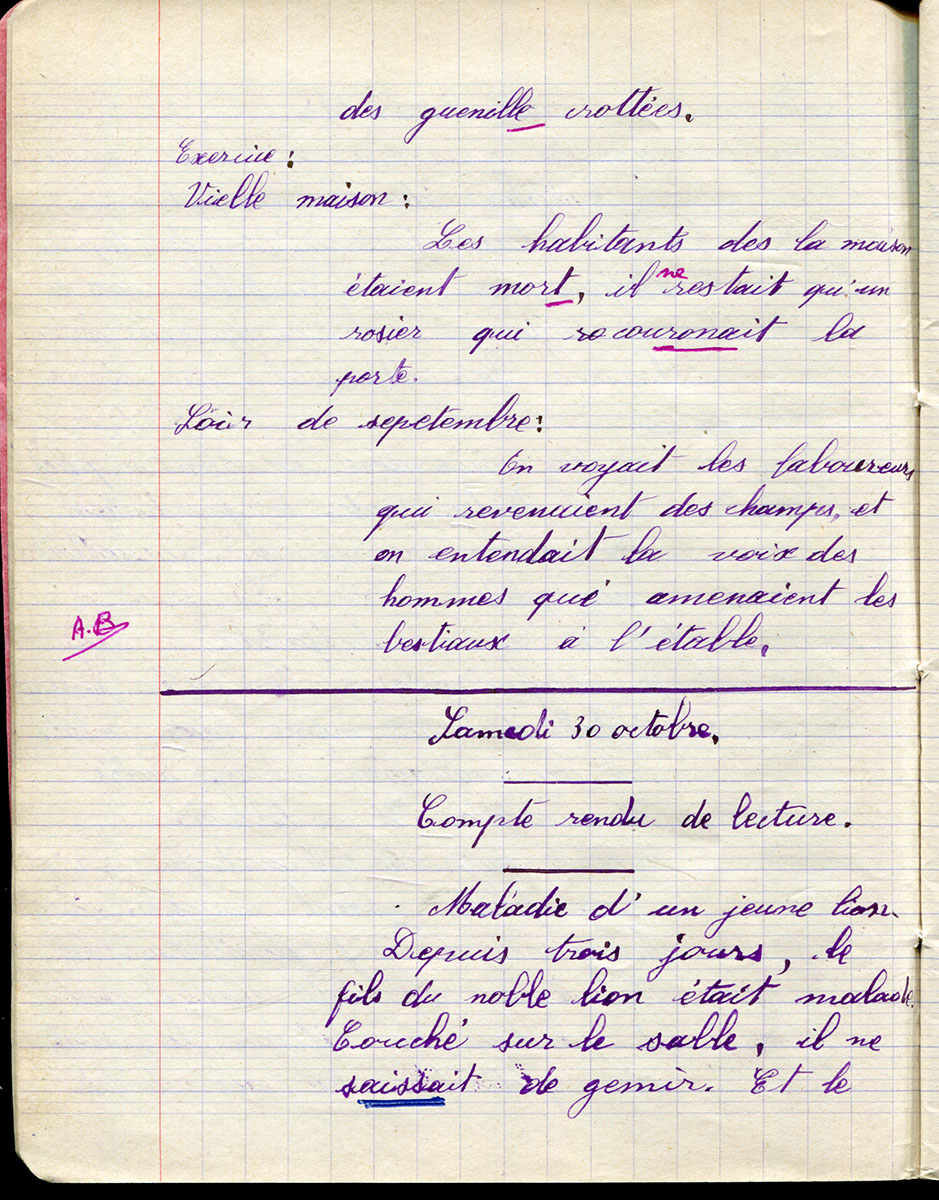 des guenille crottées.
Exercice :
Vielle maison :
Les habitants des la maison
étaient mort, il ne restait qu'un
rosier qui rocouronait la
porte.
Soir de sepetembre :
On voyait les laboureurs
qui revenaient des champs, et
on entendait la voix des
hommes qui amenaient les
bestiaux à l'étable.
A.B
Samedi 30 octobre.
Compte rendu de lecture.
Maladie d'un jeune lion.
Depuis trois jours, le
fils du noble lion était malade.
Couché sur le sable, il ne
saissait de gemir. Et le